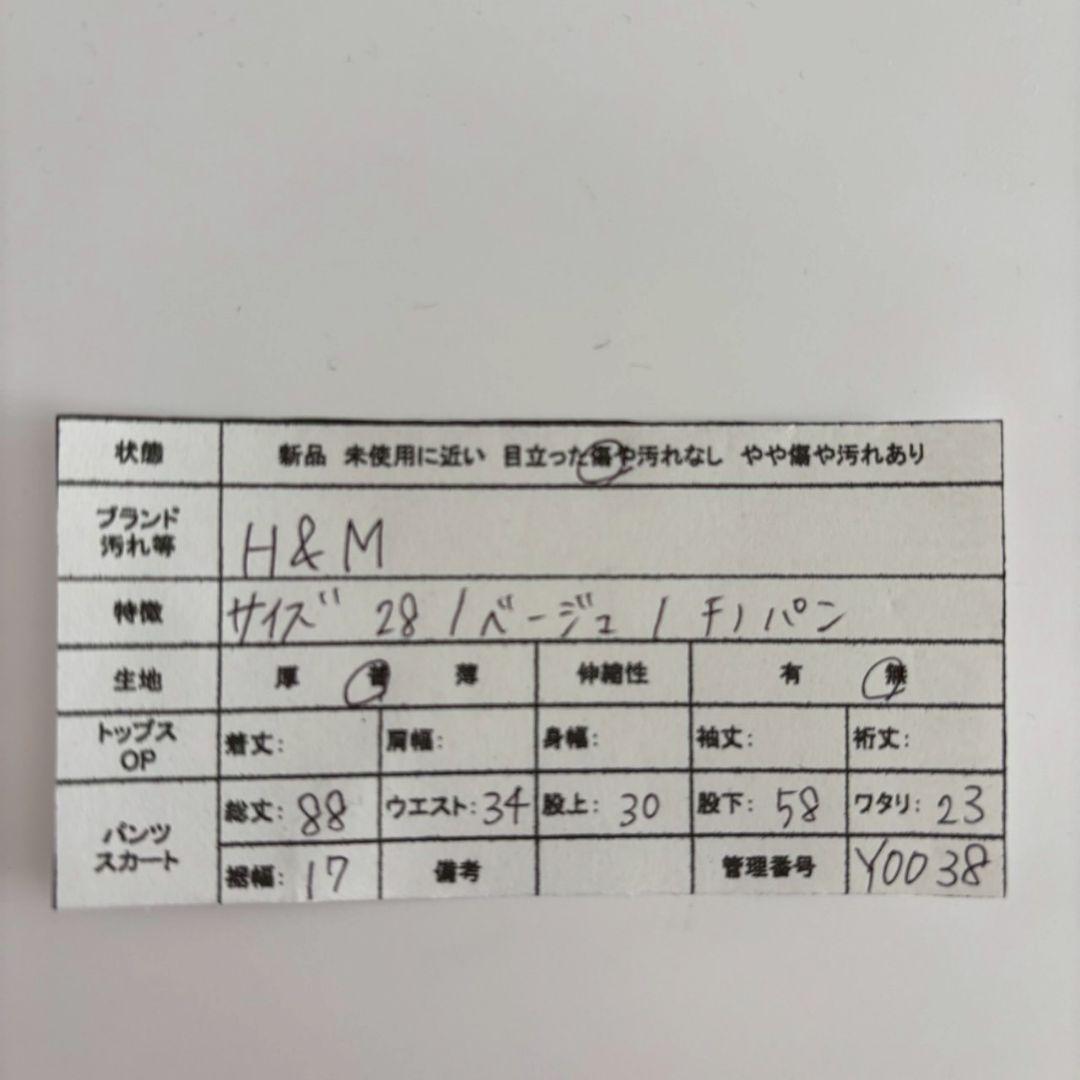 状態 新品 未使用に近い 目立った傷や汚れなし やや傷や汚れあり
ブランド
汚れ等
H&M
特徴 サイズ 28 / ベージュ / チノパン
生地 厚 普 薄 伸縮性 有 無
トップス
OP
着丈: 肩幅: 身幅: 袖丈: 裄丈:
パンツ
スカート
総丈: 88 ウエスト: 34 股上: 30 股下: 58 ワタリ: 23
裾幅: 17 備考 管理番号 Y0038